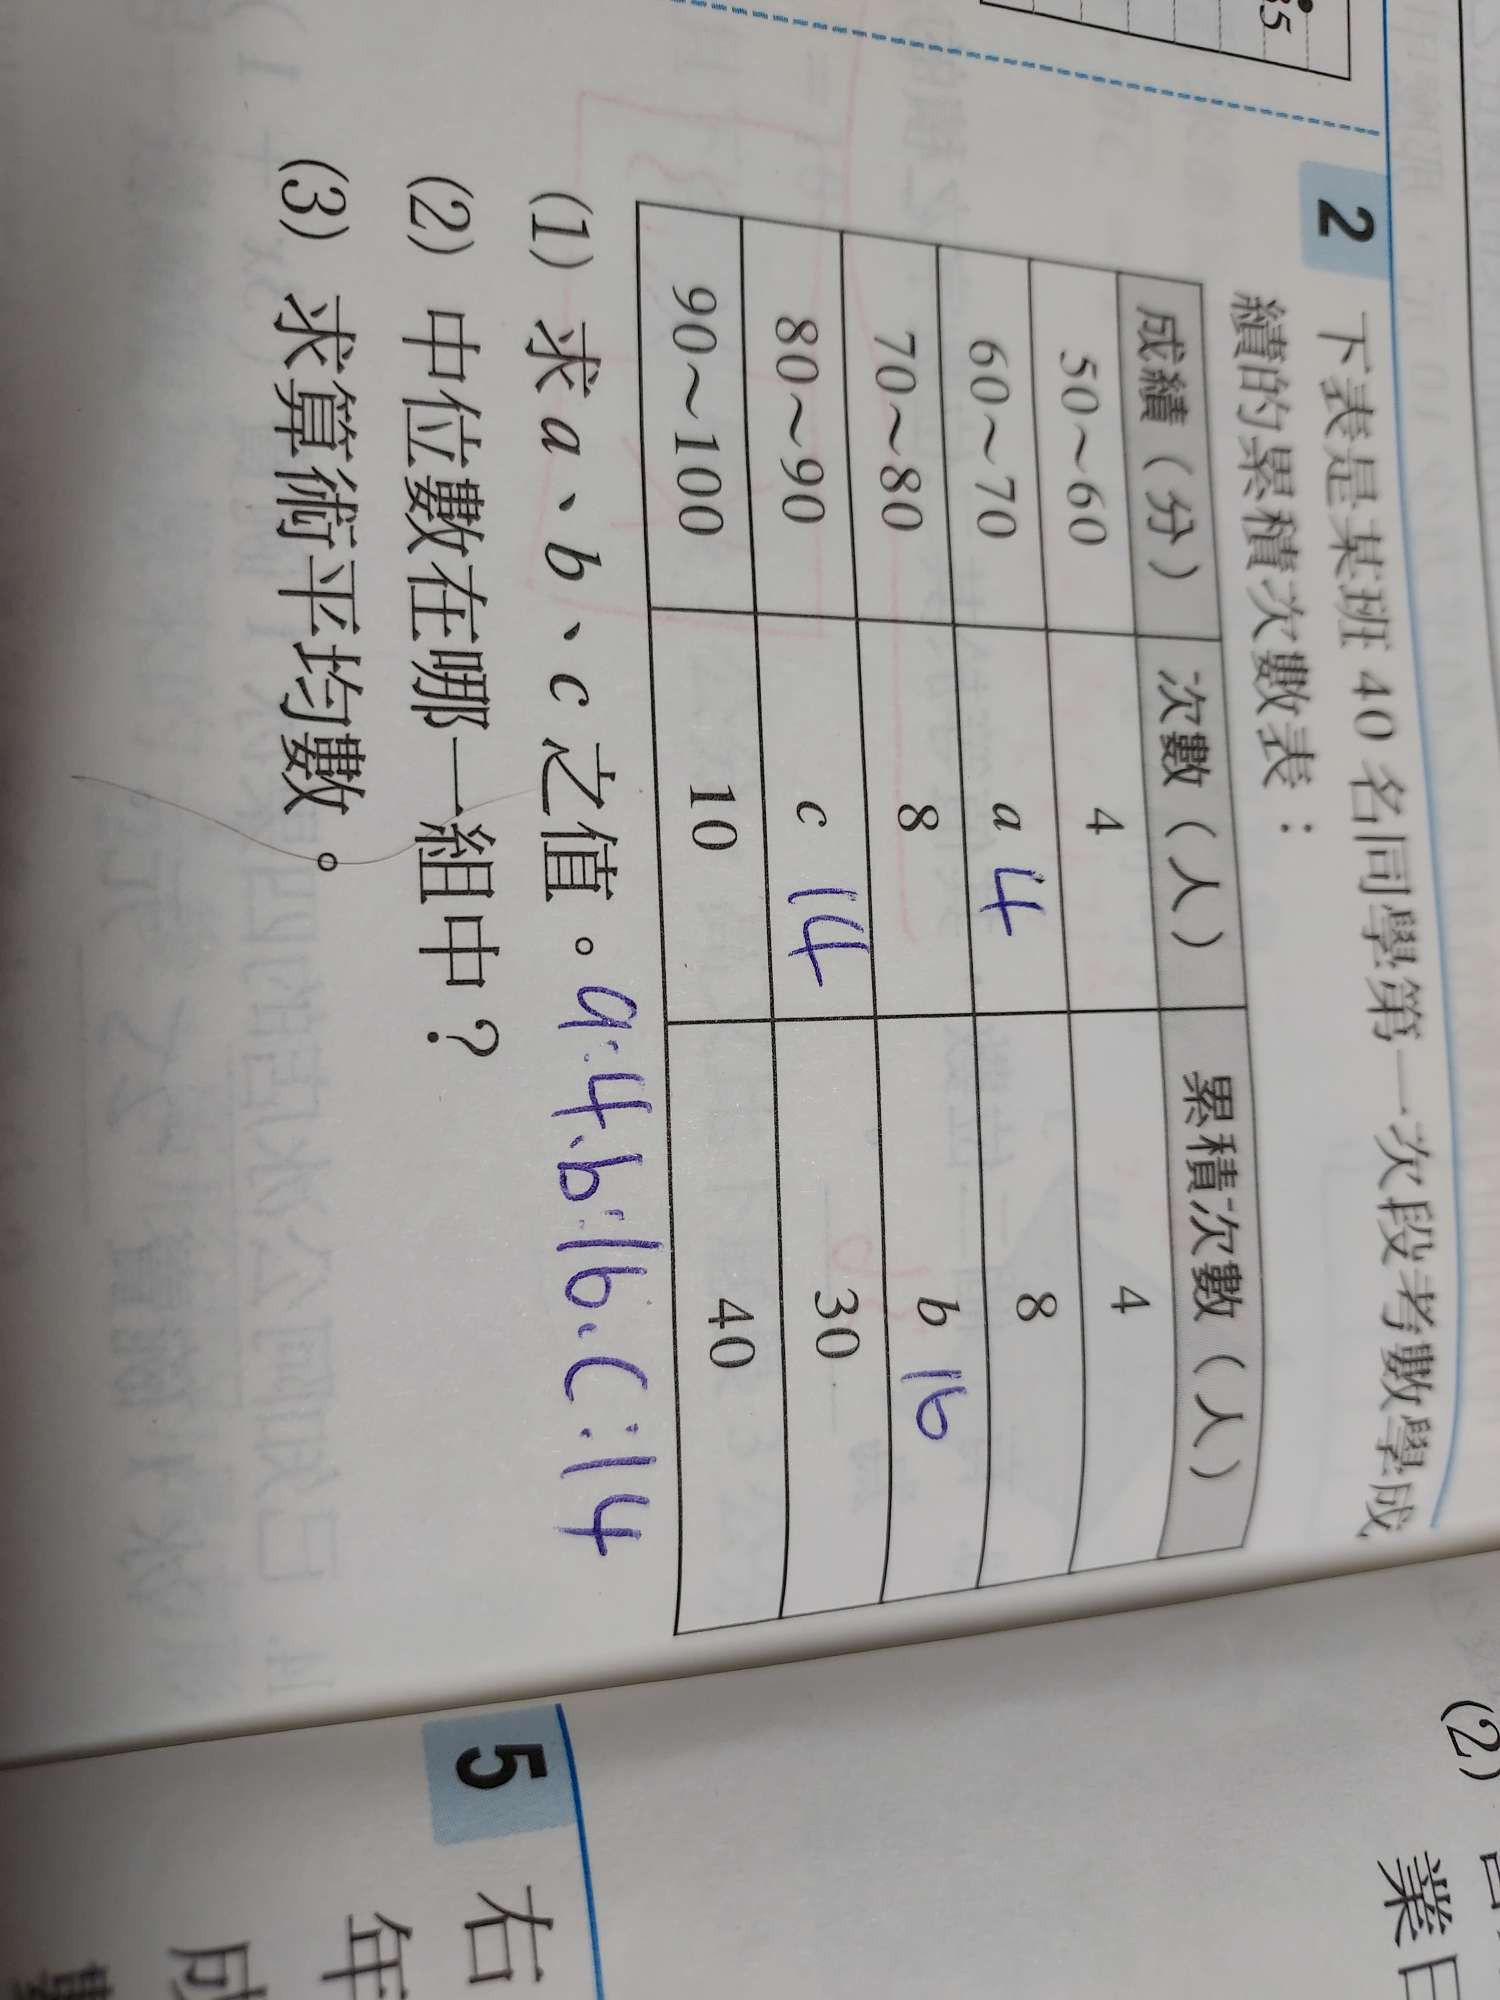 35
2 下表是某班 40 名同學第一次段考數學成
績的累積次數表：
成績（分） 次數（人） 累積次數（人）
50～60 4 4
60～70 a 4 8
70～80 8 b 16
80～90 c 14 30
90～100 10 40
(1) 求 a、b、c 之值。a:4、b:16、c:14
(2) 中位數在哪一組中？
(3) 求算術平均數。
(2)
業日
5 右
年
成